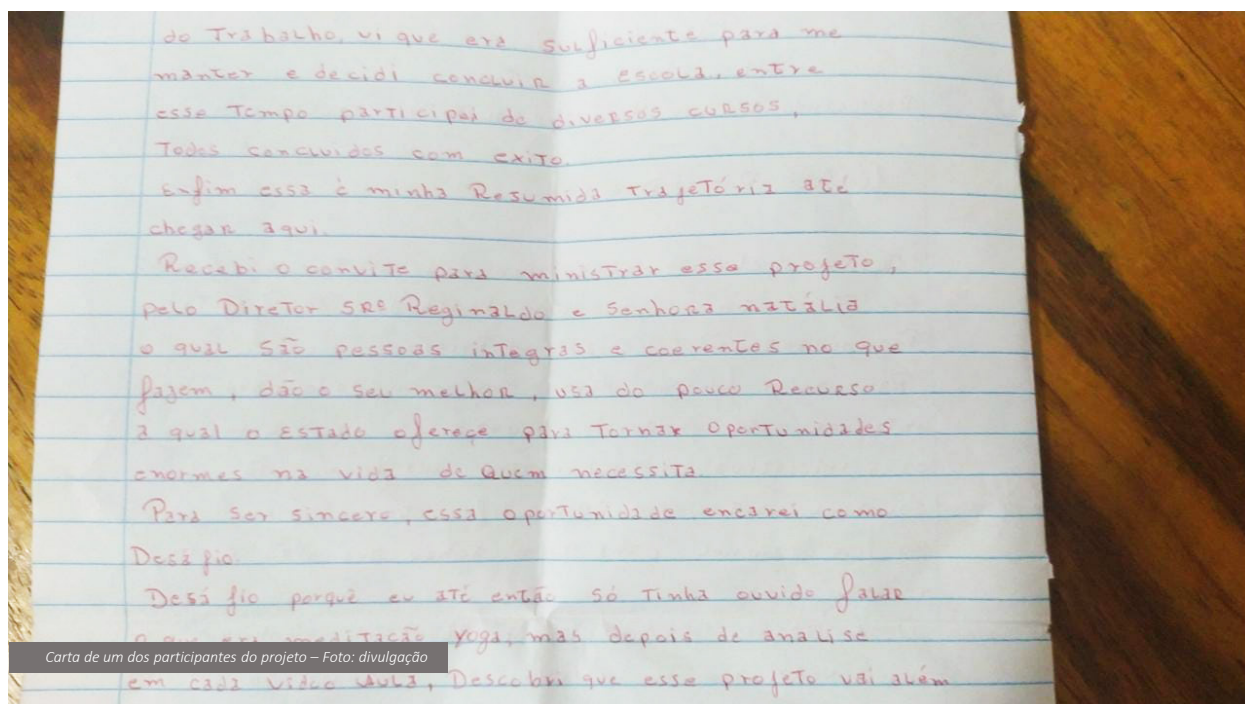 do Trabalho, vi que era suficiente para me
manter e decidi concluir a escola, entre
esse Tempo participei de diversos cursos,
Todos concluidos com exito.
Enfim essa é minha Resumida Trajetória até
chegar aqui.
Recebi o convite para ministrar esse projeto,
pelo Diretor SRº Reginaldo e Senhora natália
o qual são pessoas integras e coerentes no que
fazem, dão o seu melhor, usa do pouco Recurso
a qual o Estado ofereçe para Tornar oportunidades
enormes na vida de Quem necessita.
Para ser sincero, essa oportunidade encarei como
Desafio.
Desafio porquê eu até então só Tinha ouvido falar
o que era meditação yoga, mas depois de analise
Carta de um dos participantes do projeto – Foto: divulgação
em cada vídeo Aula, Descobri que esse projeto vai além